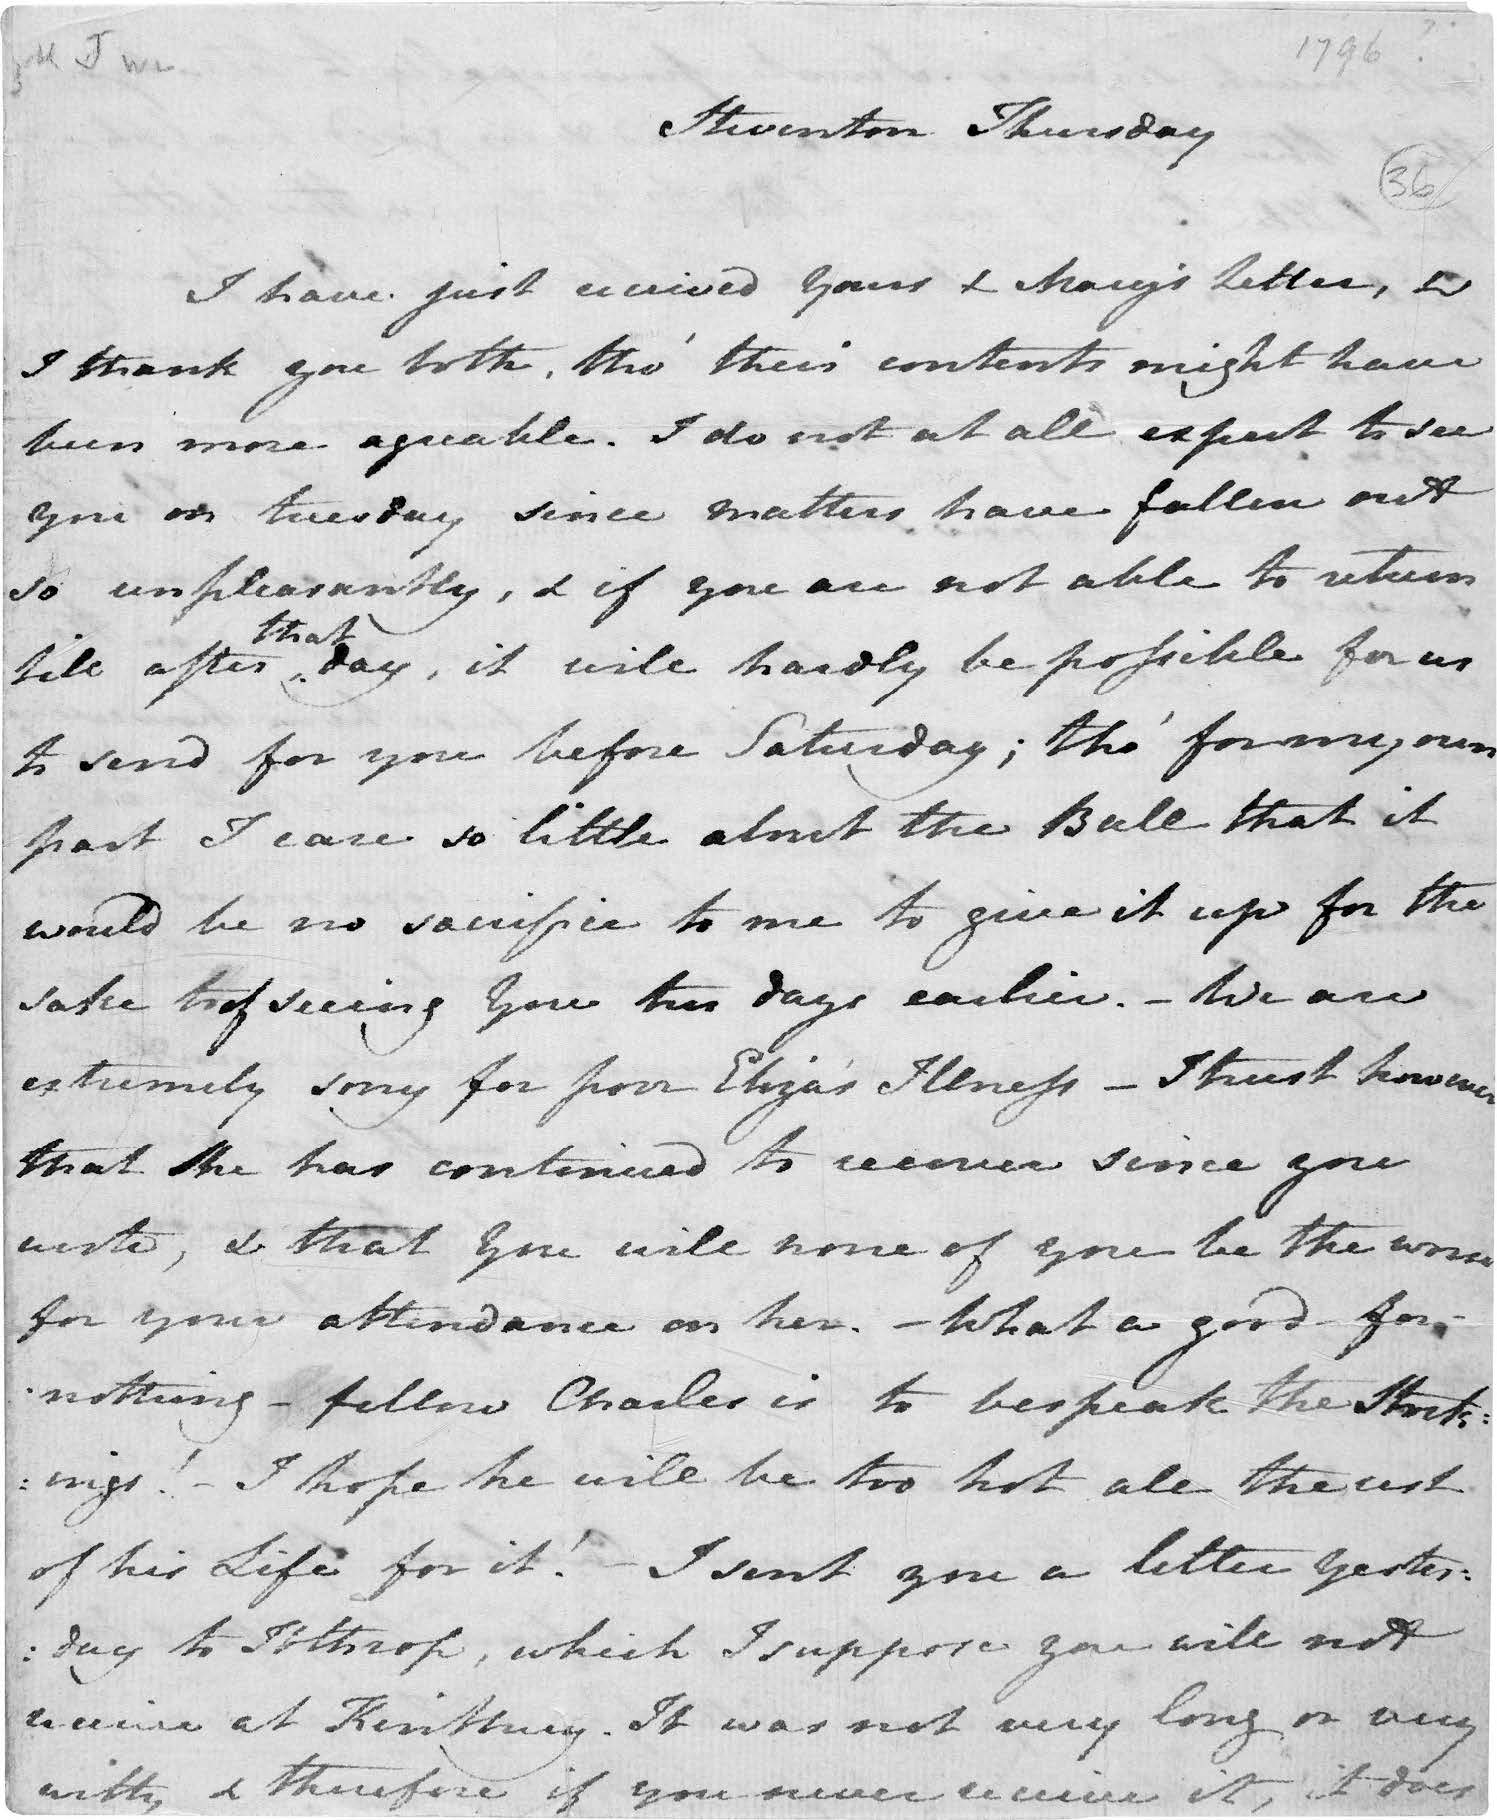 1796 ?
Steventon Thursday
36
I have just received Yours & Mary's Letter, &
I thank you both, tho' their contents might have
been more agreable. I do not at all expect to see
you on tuesday since matters have fallen out
so unpleasantly, & if you are not able to return
till after that day, it will hardly be possible for us
to send for you before Saturday; tho' for my own
part I care so little about the Ball that it
would be no sacrifice to me to give it up for the
sake of seeing You two days earlier. - We are
extremely sorry for poor Eliza's Illness - I trust however
that she has continued to recover since you
wrote, & that You will none of you be the worse
for your attendance on her. - What a good-for-
nothing-fellow Charles is to bespeak the Stock:
:ings! - I hope he will be too hot all the rest
of his Life for it! - I sent you a letter Yester:
:day to Ibthrop, which I suppose you will not
receive at Kintbury. It was not very long or very
witty, & therefore if you never receive it, it does